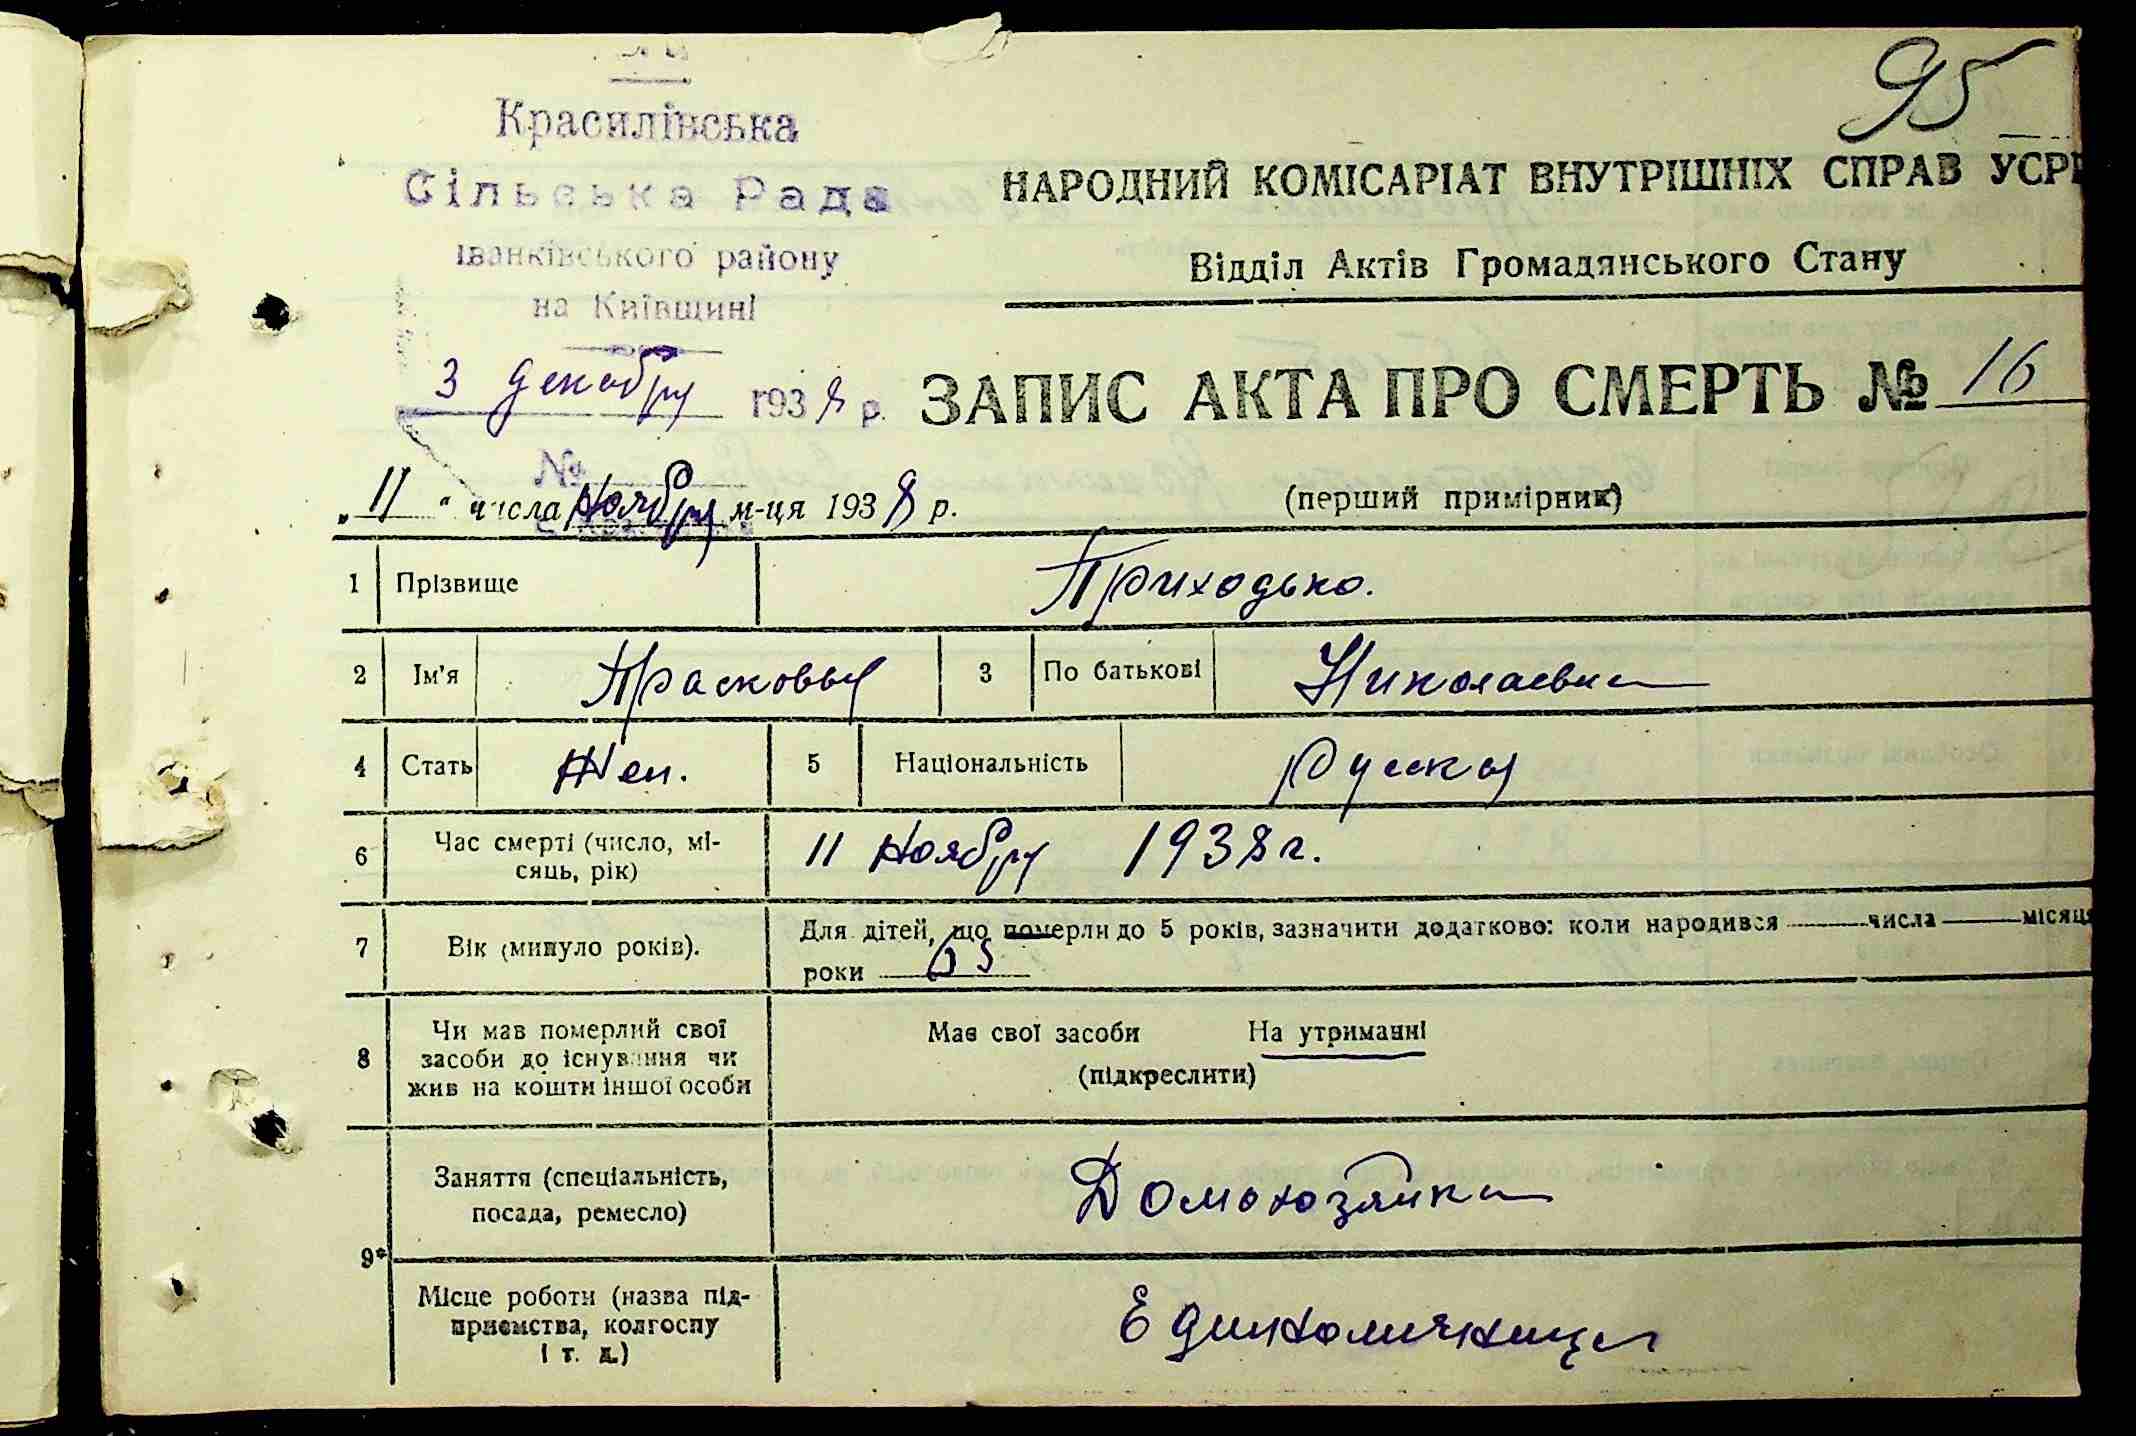 95
Красилівська
Сільська Рада
Іванківського району
на Київщині
3 декабря 1938 р.
№
НАРОДНИЙ КОМІСАРІАТ ВНУТРІШНІХ СПРАВ УСРР
Відділ Актів Громадянського Стану
ЗАПИС АКТА ПРО СМЕРТЬ № 16
„11“ числа Ноября м-ця 1938 р.
(перший примірник)
1 Прізвище Приходько.
2 Ім'я Прасковья 3 По батькові Николаевна
4 Стать Жен. 5 Національність Русская
6 Час смерті (число, мі-
сяць, рік) 11 Ноября 1938 г.
7 Вік (минуло років). Для дітей, що померли до 5 років, зазначити додатково: коли народився числа місяця
роки 65
8 Чи мав померлий свої
засоби до існування чи
жив на кошти іншої особи
Має свої засоби На утриманні
(підкреслити)
9* Заняття (спеціальність,
посада, ремесло) Домохозяйка
Місце роботи (назва під-
приємства, колгоспу
і т. д.) Единоличница